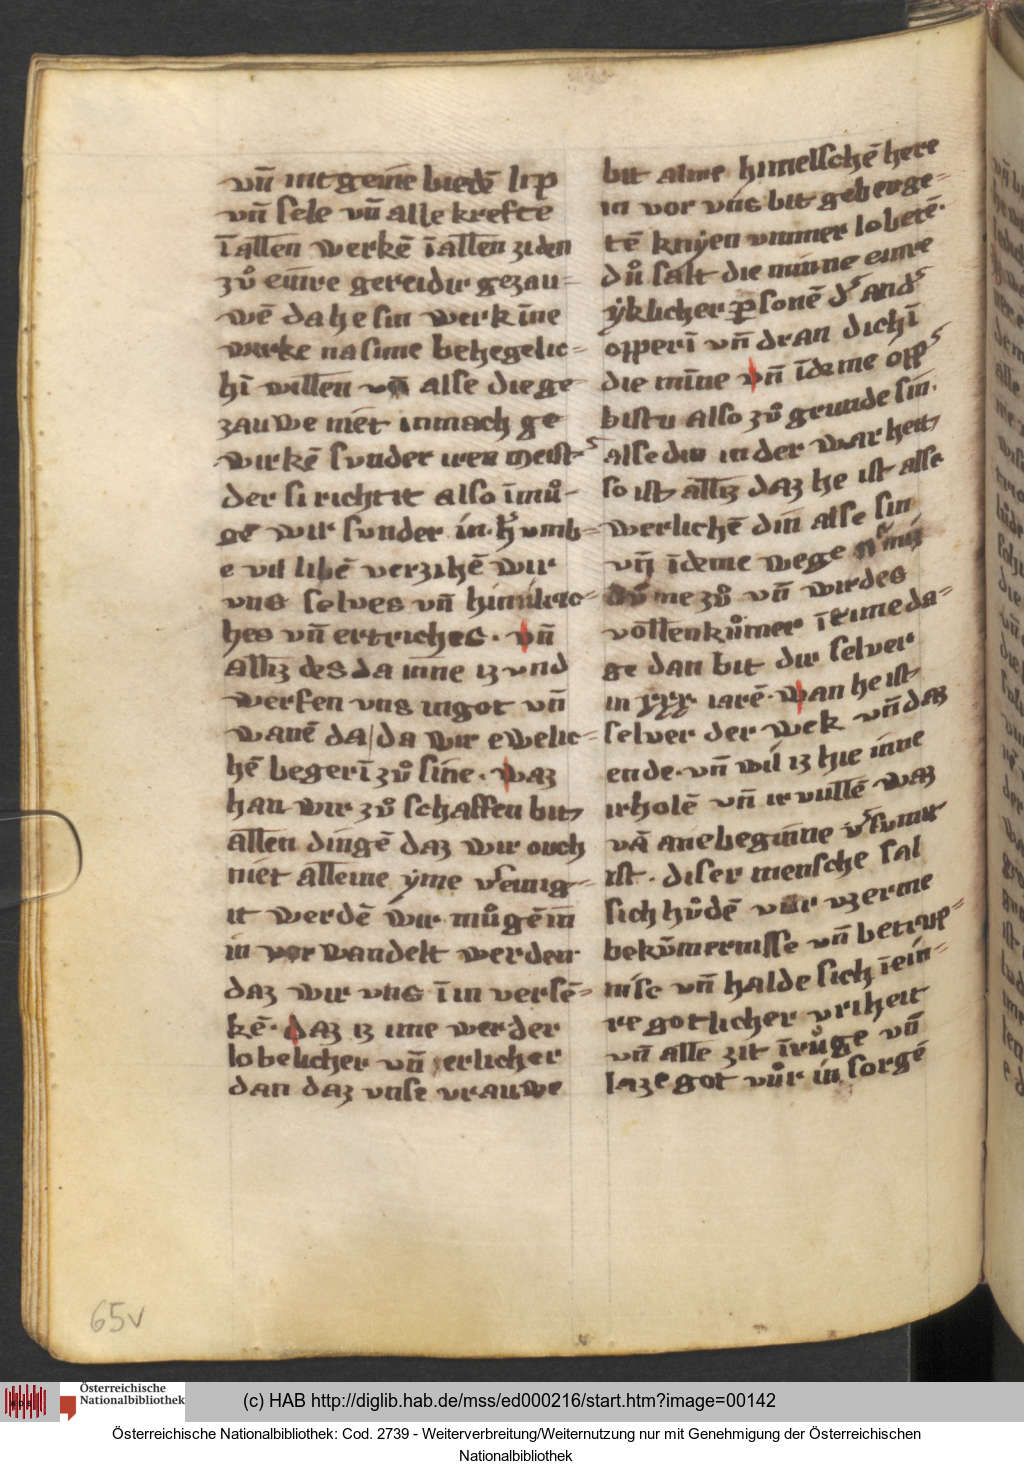 vn̄ mt geine biedē lip
vn̄ sele vn̄ alle krefte
ī allen werkē ī allen ziden
zuͦ eīnre gereidir gezau=
wē da he sin werk īne
wirke na sinne behegelic=
hī willen vn̄ alse die ge
zauwe niet inmach ge
wirkē sunder iren meist
der si richtit also īmuͦ-
ge wir sunder in. humb=
e vil libē verzihē wir
vns selves vn̄ himilric=
hes vn̄ ertriches. vn̄
alliz des da inne iz vnd
werfen vns ingot vn̄
wanē da da wir ewelic=
hē begerī zuͦ sine. waz
han wir zuͦ schaffen bit
allen dingē daz wir ouch
niet alleine yme vereinig=
it werdē wir muͦgē in
in vor wandelt werden
daz wir vns ī in versē=
kē. daz iz ime werder
lobelicher vn̄ erlicher
dan daz vnse vrauwe
bit alme himelschē here
in vor vns bit geberge=
tē knyen vmmer lobetē.
duͦ salt die minne einre
yklicher persone der ander
opperī vn̄ dran dich ī
die mīne vn̄ ī deme opper
bistu also zuͦ grunde sin.
alse du in der warheit
so ist alliz daz he ist alse
werlichē din alse sin
vn̄ ī deme wege
me zuͦ vn̄ wirdes
vollenkuͦmer ī eime da=
ge dan bit dir selver
in xxx iarē. wan he ist
selver der wek vn̄ daz
ende. vn̄ wil iz hie inne
irholē vn̄ ir vullē waz
vā anebeginne virsumit
ist. diser mensche sal
sich huͦdē vur vzerme
bekūmernisse vn̄ betrup=
nisc vn̄ halde sich ī ein=
re gotlicher vriheit
vn̄ alle zit ī ruͦge vn̄
laze got vuͦr in sorgē
65v
hab
Österreichische
Nationalbibliothek
(c) HAB http://diglib.hab.de/mss/ed000216/start.htm?image=00142
Österreichische Nationalbibliothek: Cod. 2739 - Weiterverbreitung/Weiternutzung nur mit Genehmigung der Österreichischen
Nationalbibliothek